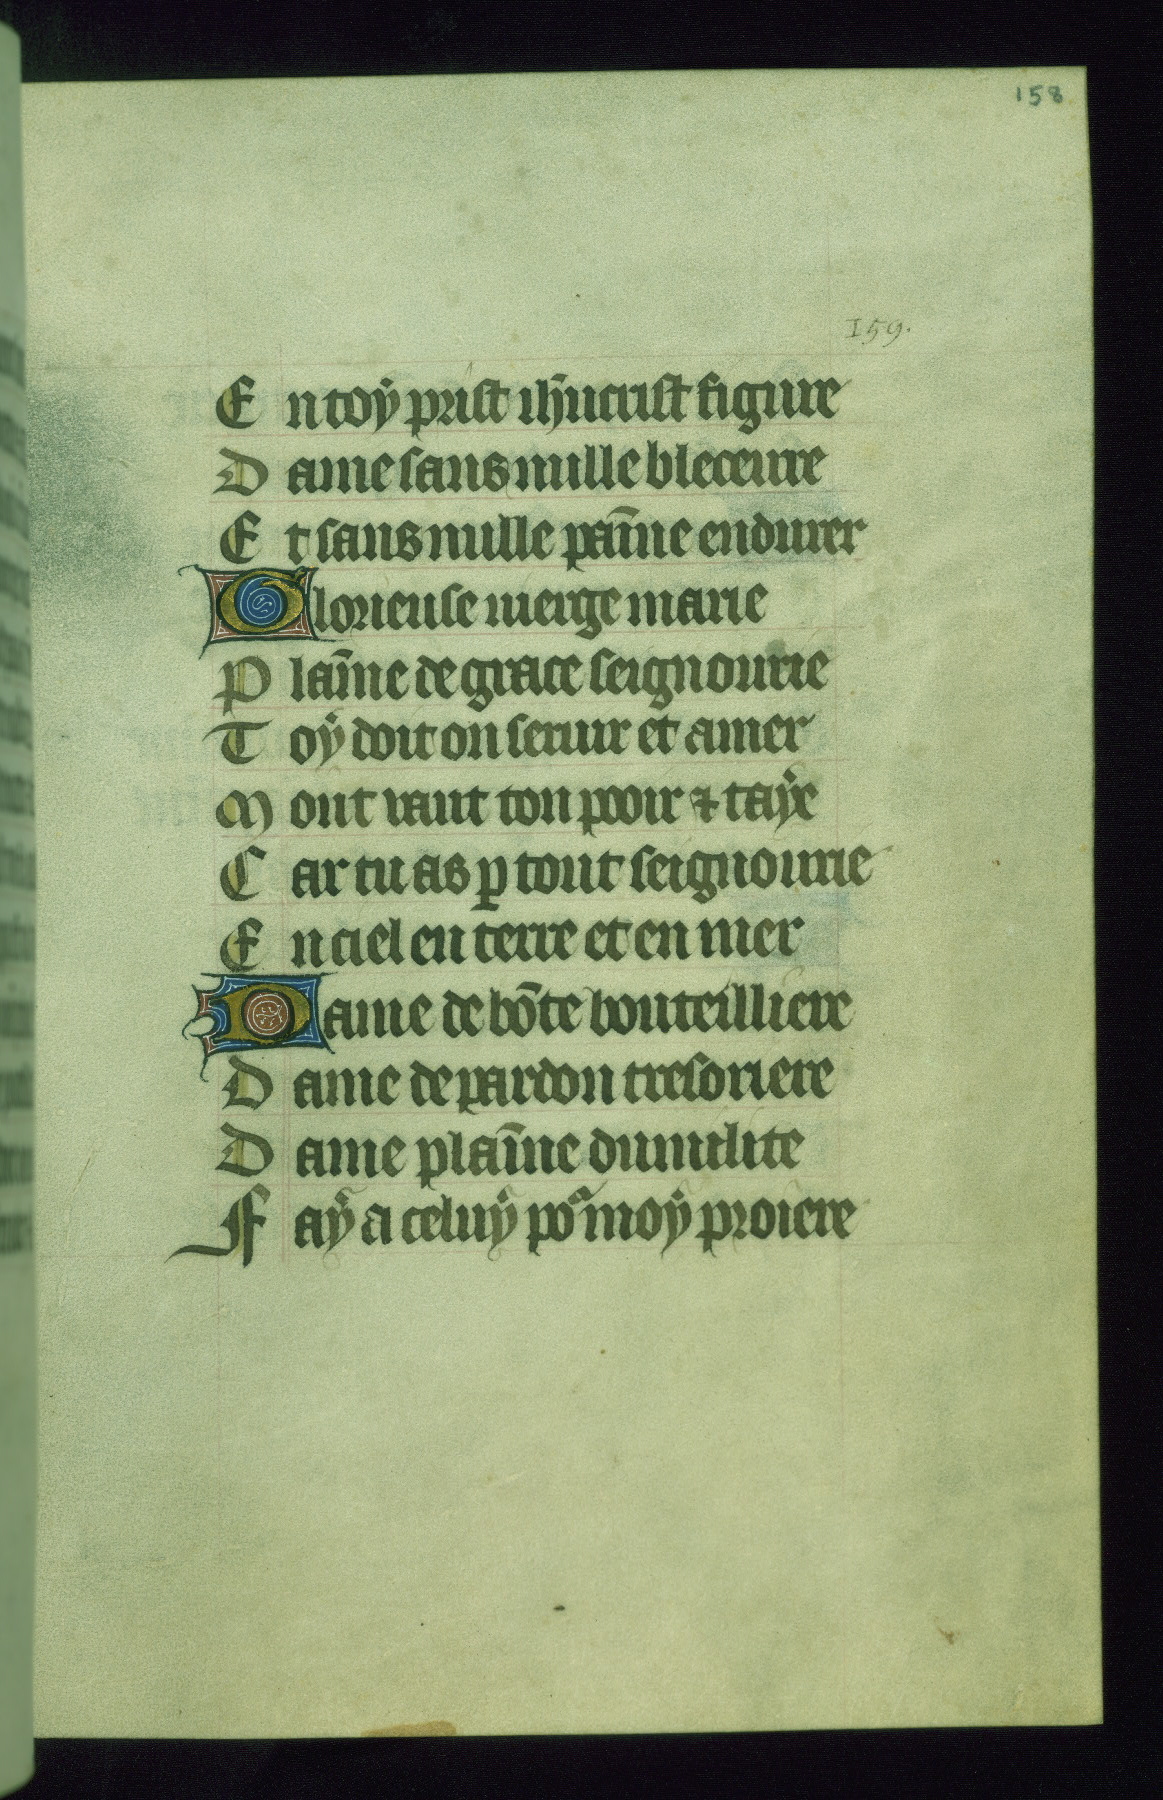 158
159.
En toÿ prist ihūcrist figure
Dame sans nulle bleceure
Et sans nulle pai̅ne endurer
Glorieuse uierge marie
Plai̅ne de grace seignourie
Toÿ doit on seruir et amer
Mont vaut ton pooir ⁊ taÿe
Car tu as ꝑ tout seignourie
En ciel en terre et en mer
Dame de bōte bouteilliere
Dame de pardon tresoriere
Dame plai̅ne dumilite
Faÿ a celuÿ poᷣ moÿ proiere